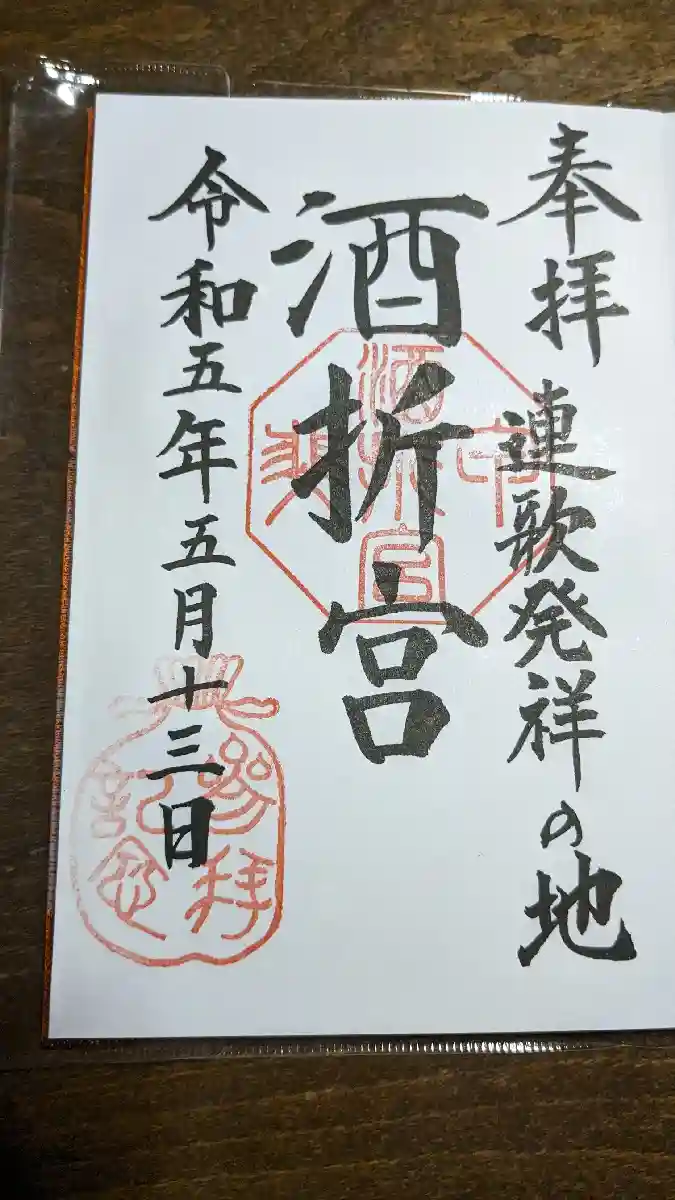 奉拝 連歌発祥の地
酒折宮
令和五年五月十三日
参拝
記念